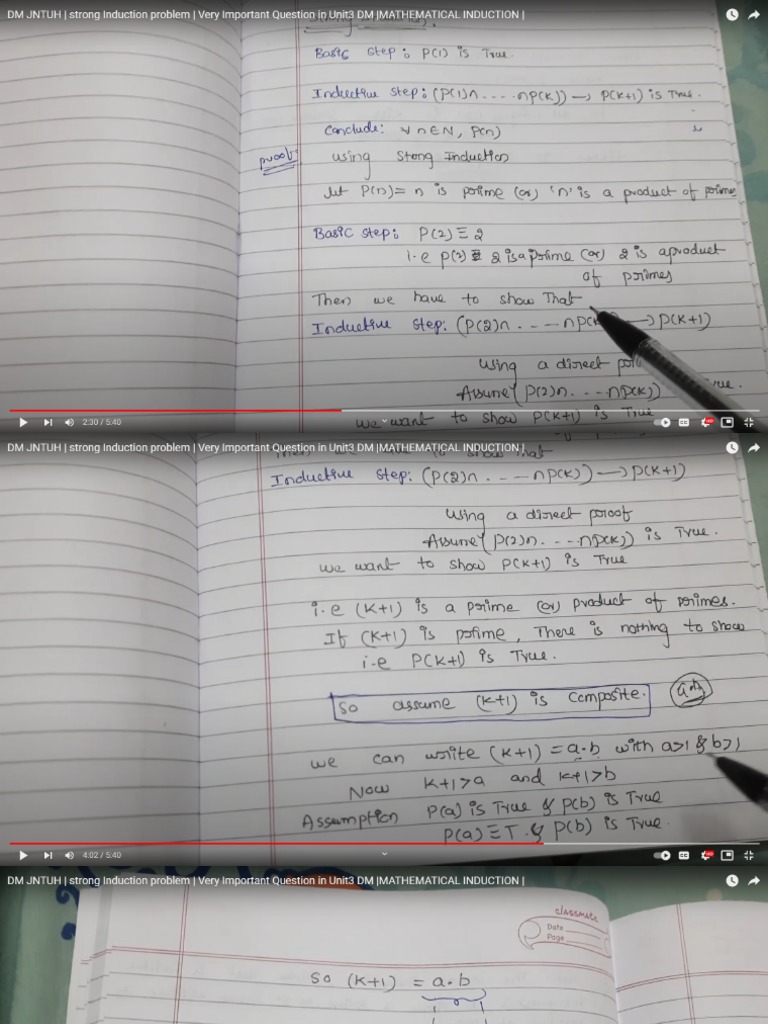 DM JNTUH | strong Induction problem | Very Important Question in Unit3 DM |MATHEMATICAL INDUCTION |
Basic Step: P(1) is True.
Inductive Step: (P(1)∩.....∩P(k)) → P(k+1) is True.
Conclude: ∀ n∈N, P(n)
proof:
using Stong Induction
let P(n)= n is prime (or) 'n' is a product of prime
Basic step: P(2) ≡ 2
i.e P(2) ≡ 2 is a prime (or) 2 is a product
of primes
Then we have to show That
Inductive Step: (P(2)∩.----∩P(k → P(k+1)
using a direct
Assume (P(2)∩...-∩P(k)) rue.
we want to show P(k+1) is True
2:30 / 5:40
DM JNTUH | strong Induction problem | Very Important Question in Unit3 DM |MATHEMATICAL INDUCTION |
Inductive Step: (P(2)∩.---∩P(k)) → P(k+1)
using a direct proof
Assume (P(2)∩...-∩P(k)) is True.
we want to show P(k+1) is True
i.e (k+1) is a prime (or) product of primes.
If (k+1) is prime, There is nothing to show
i.e P(k+1) is True.
so assume (k+1) is Composite.
we can write (k+1) = a.b with a>1 & b>1
Now k+1>a and k+1>b
Assumption P(a) is True & P(b) is True
P(a) ≡ T & P(b) is True.
4:02 / 5:40
DM JNTUH | strong Induction problem | Very Important Question in Unit3 DM |MATHEMATICAL INDUCTION |
classmate
Date
Page
So (k+1) = a.b